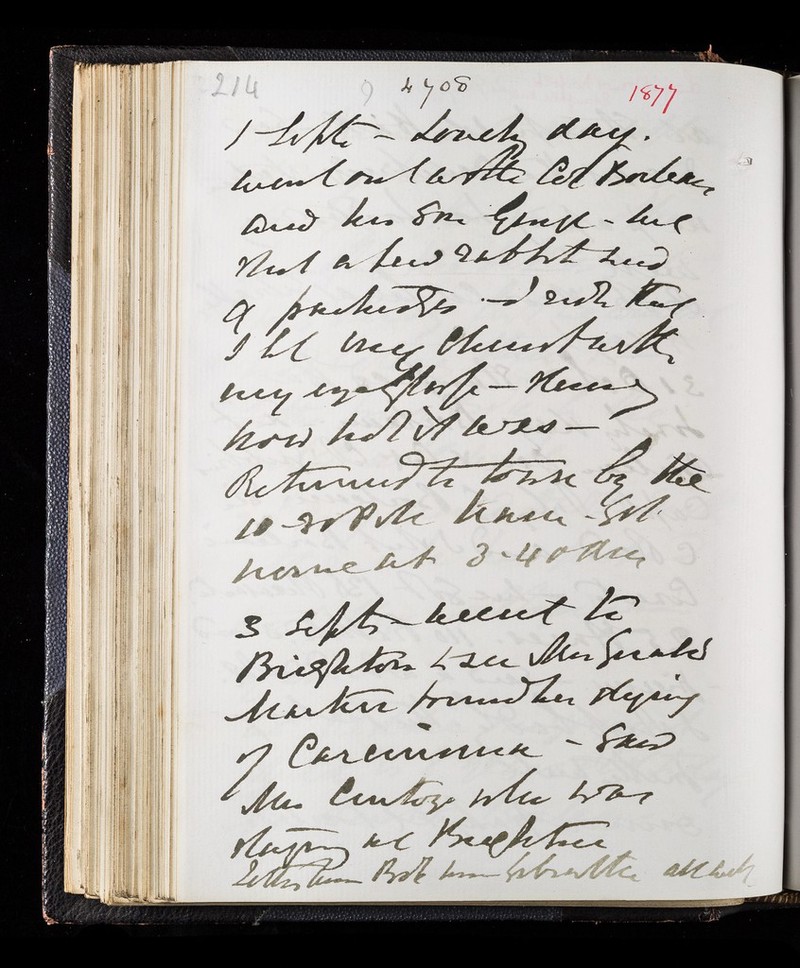 214 4708 1877
1 Septr - Lovely day.
went out with Col
and his son George - we
shot a few rabbits and
a partridge - I
I hit my Chin with
my eye glass -
how hot it was -
Returned to town by the
10-30 train - Got
home at 3-40
3 Septr - went to
Brighton to see Mrs Gerald
found her dying
of Carcinoma - Saw
Mrs who was
staying at Brighton
Letters from Bob from Gibraltar all well